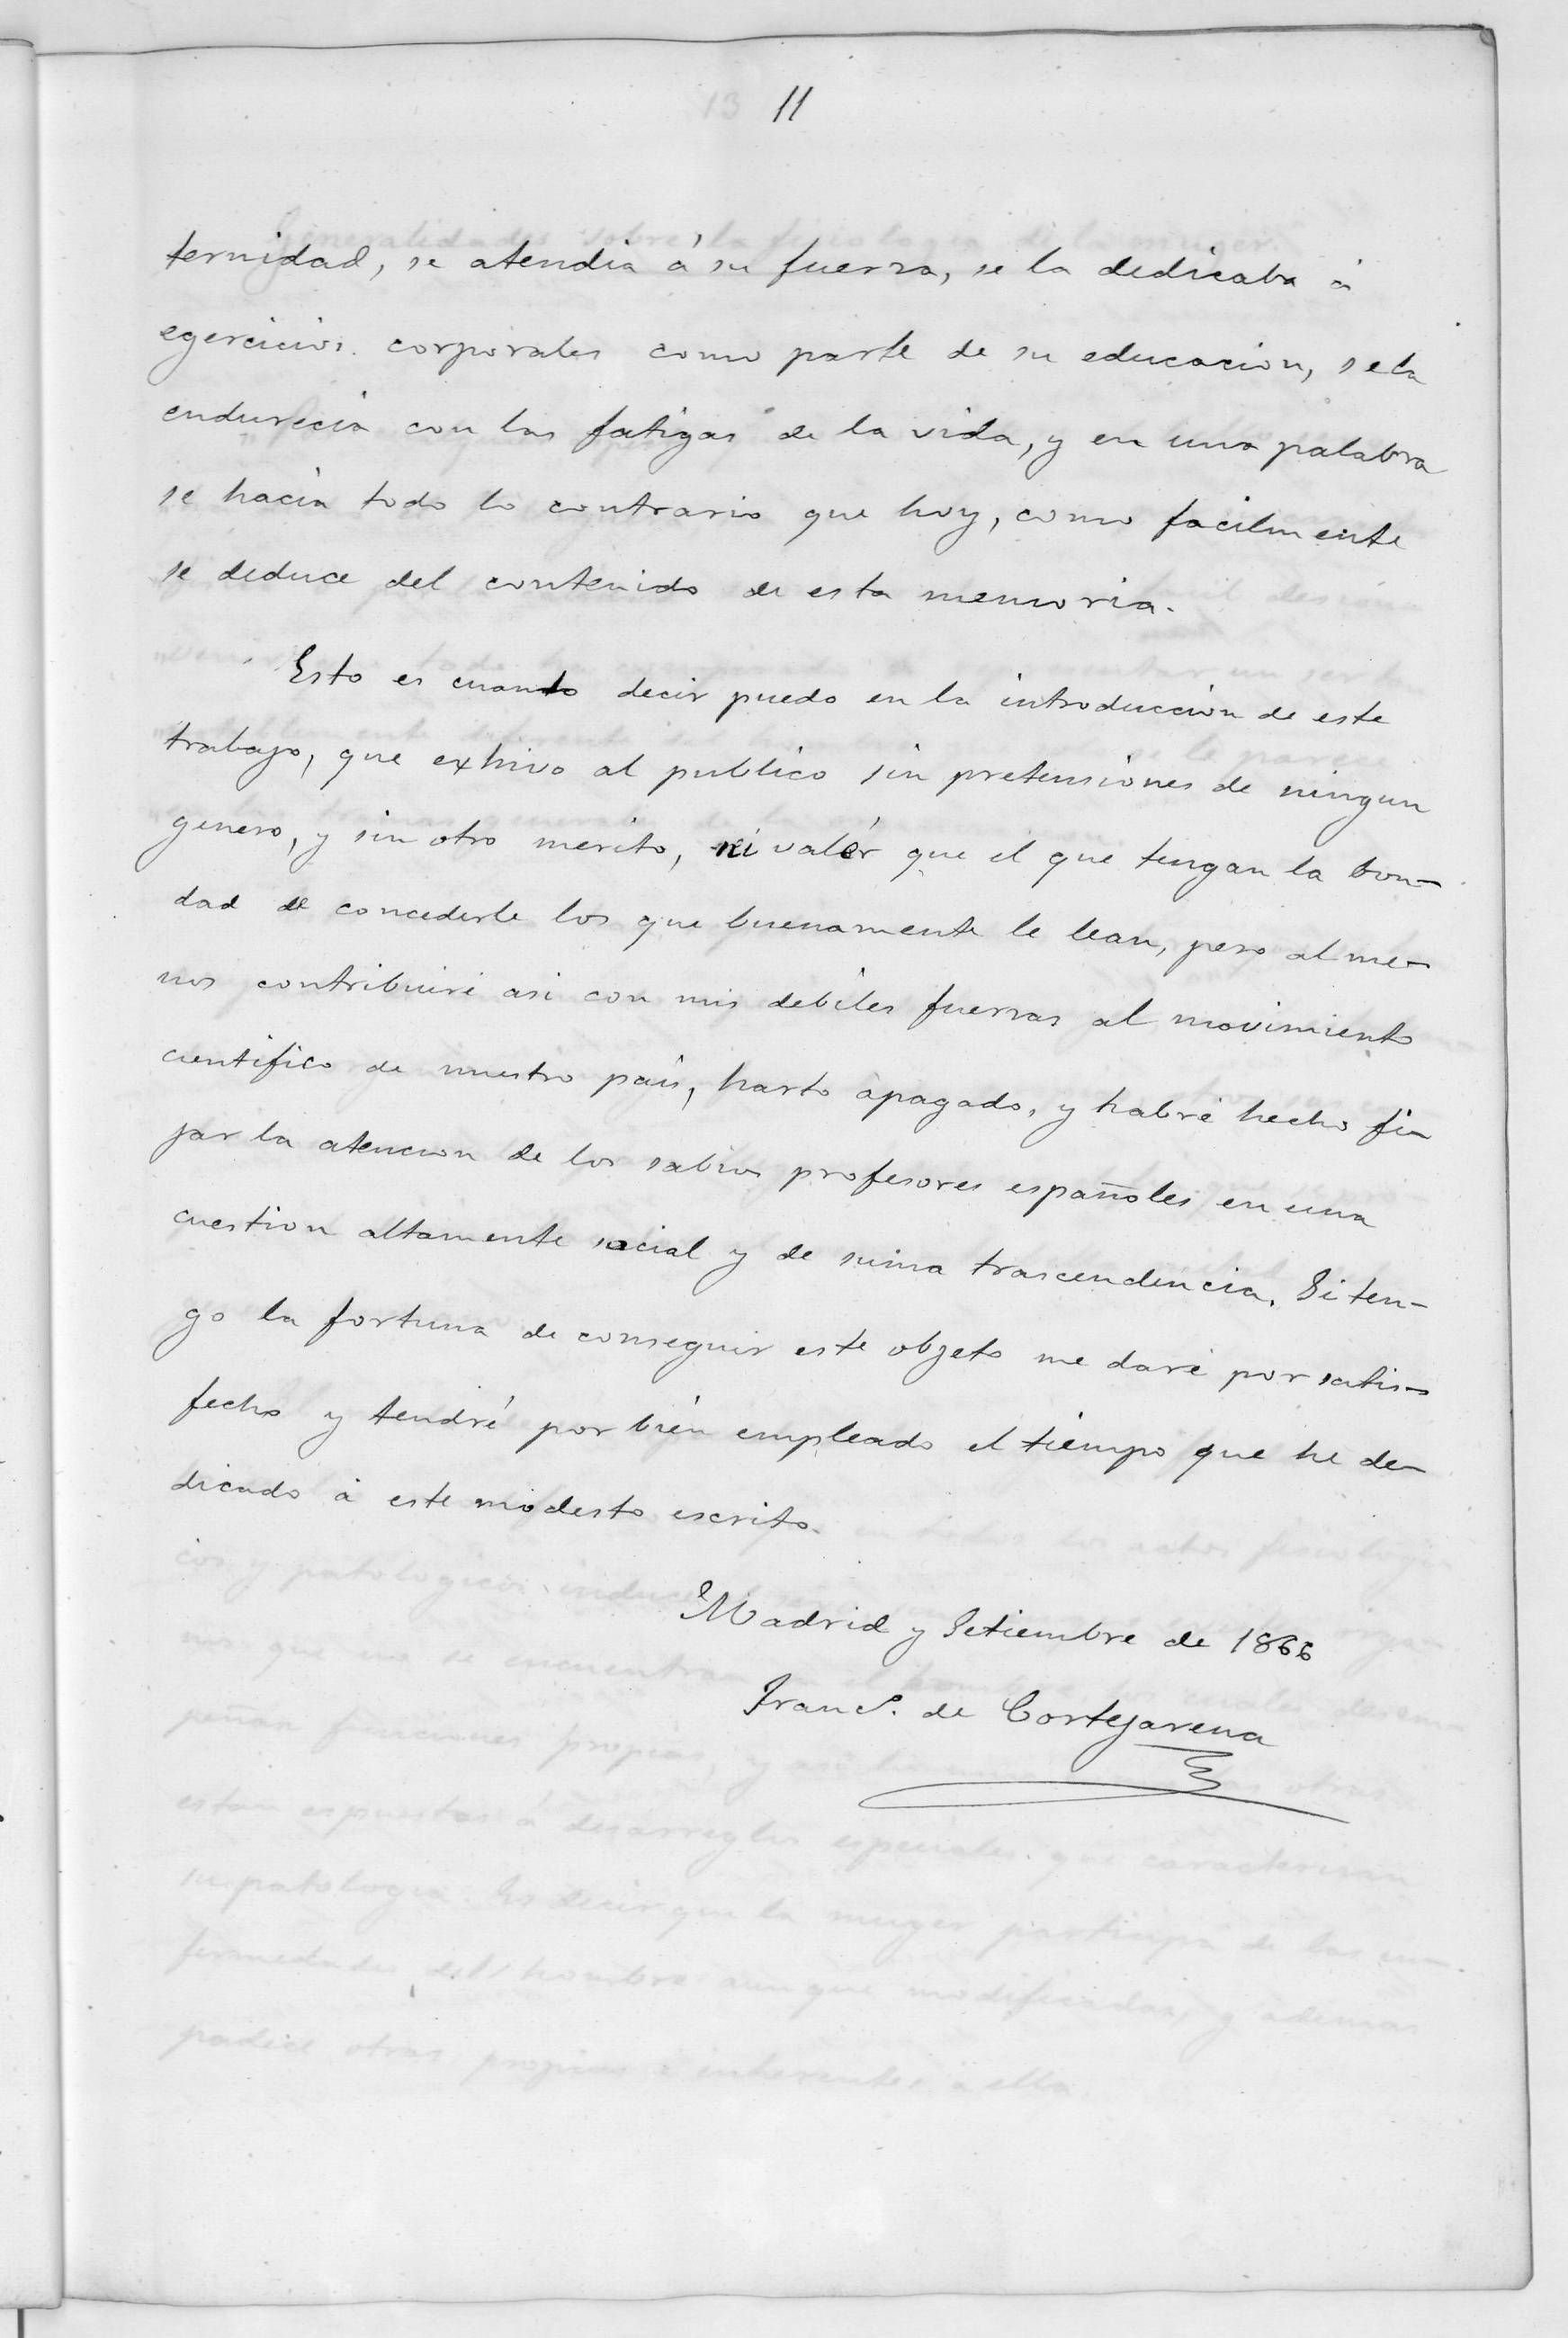 11
ternidad, se atendia á su fuerza, se la dedicaba á
egercicios corporales como parte de su educacion, se la
endurecia con las fatigas de la vida, y en una palabra
se hacia todo lo contrario que hoy, como facilmente
se deduce del contenido de esta memoria.
Esto es cuanto decir puedo en la introduccion de este
trabajo, que exhivo al publico sin pretensiones de ningun
genero, y sin otro merito, ni valór que el que tengan la bon-
dad de concederle los que buenamente le lean, pero al me-
nos contribuiré asi con mis debiles fuerzas al movimiento
cientifico de nuestro pais, harto apagado, y habré hecho fi-
jar la atencion de los sabios profesores españoles en una
cuestion altamente social y de suma trascendencia. Si ten-
go la fortuna de conseguir este objeto me daré por satis-
fecho y tendré por bien empleado el tiempo que he de-
dicado á este modesto escrito.
Madrid y Setiembre de 1866
Franco. de Cortejarena